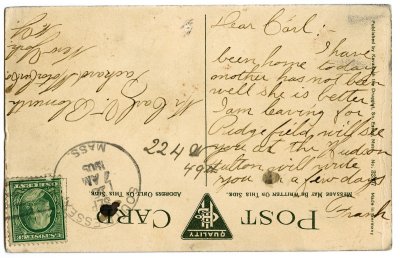 Dear Carl:-
I have
been home today
mother has not been
well she is better
I am leaving for
Ridgefield, will see
you at the Hudson
Fulton will write
you in a few days
Frank
Mr Carl
Packard Motor Car Co.
New York
N.Y.
224 W
49th
MASS
7 AM
POST CARD
ADDRESS ONLY ON THIS SIDE.
MESSAGE MAY BE WRITTEN ON THIS SIDE.
QUALITY
Made in Germany